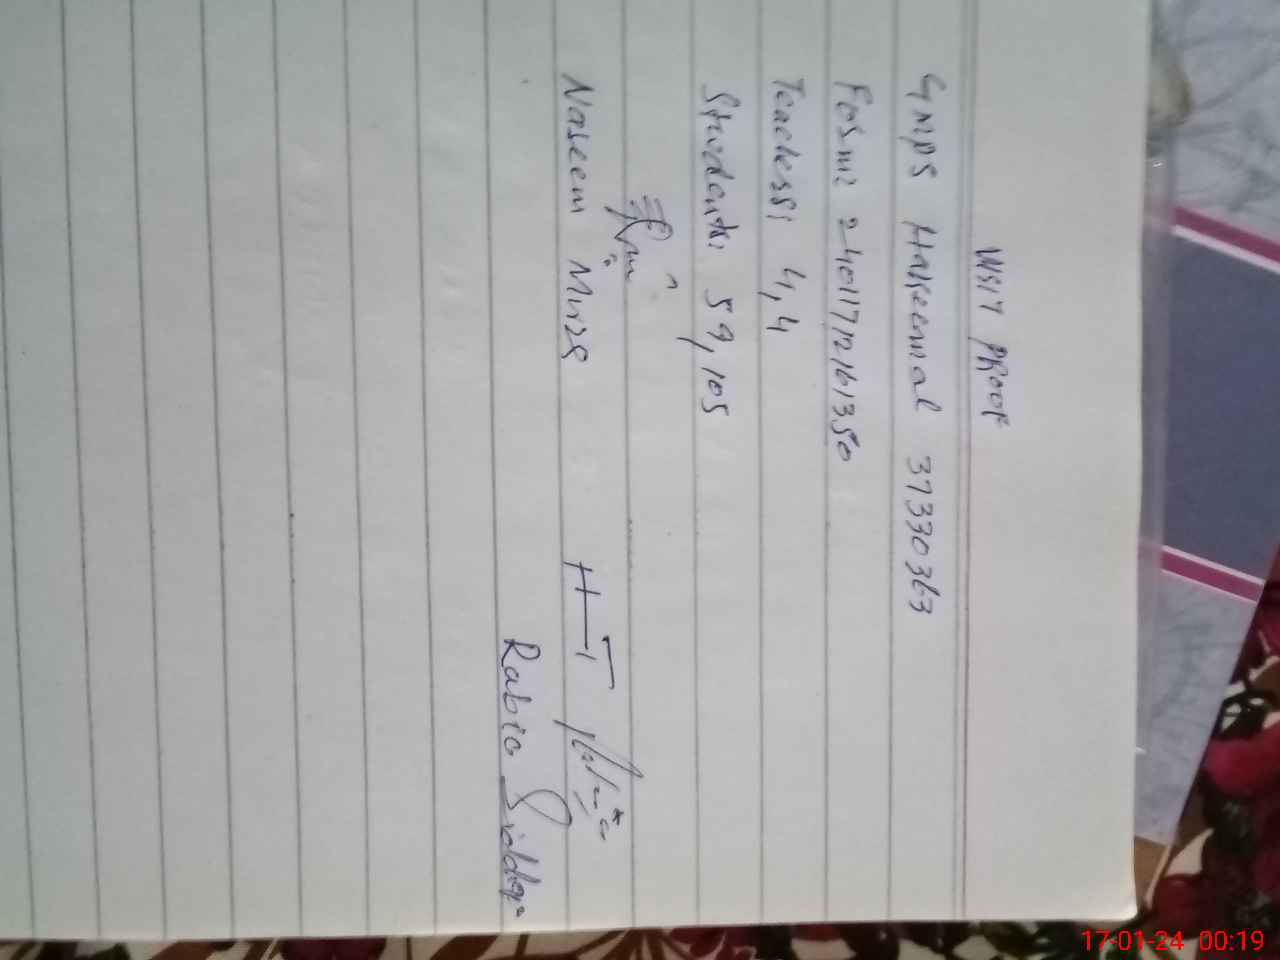 VISIT PROOF
GMPS Harseemal 37330363
Form: 24011712161350
Teachers: 4,4
Students: 59, 105
Naseem Mirza
HT Rabia
Rabia Siddiqa
17-01-24 00:19